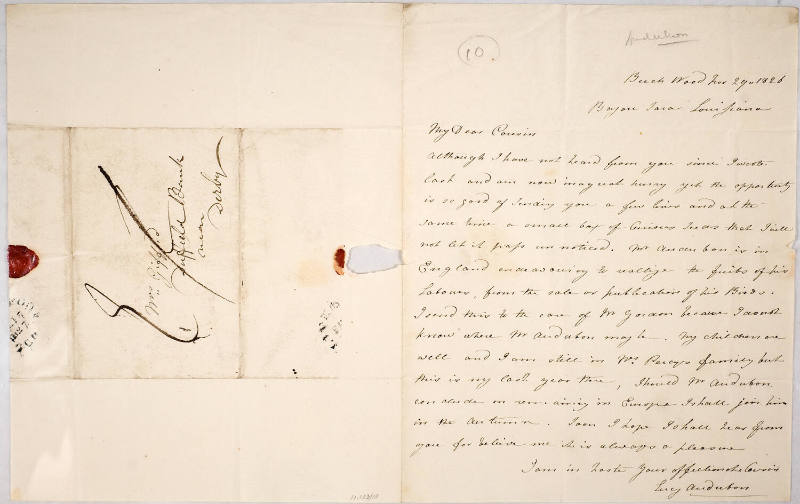 Mrs Gifford
Duffield Bank
near
Derby
10.
Audubon
Beech Wood Nov 29th 1826
Bayou Sara Louisiana
My Dear Cousin
Although I have not heard from you since I wrote
last and am now in a great hurry yet the opportunity
is so good of sending you a few lines and at the
same time a small bag of curious seeds that I will
not let it pass un noticed. Mr Audubon is in
England endeavouring to realize the fruits of his
Labours, from the sale or publication of his Birds.
I send this to the care of Mr Gordon because I do not
know where Mr Audubon may be. My children are
well and I am still in Mrs Percys family but
this is my last year there, Should Mr Audubon
conclude on remaining in Europe I shall join him
in the Autumn. Soon I hope I shall hear from
you for believe me it is always a pleasure
I am in haste Your affectionate Cousin
Lucy Audubon